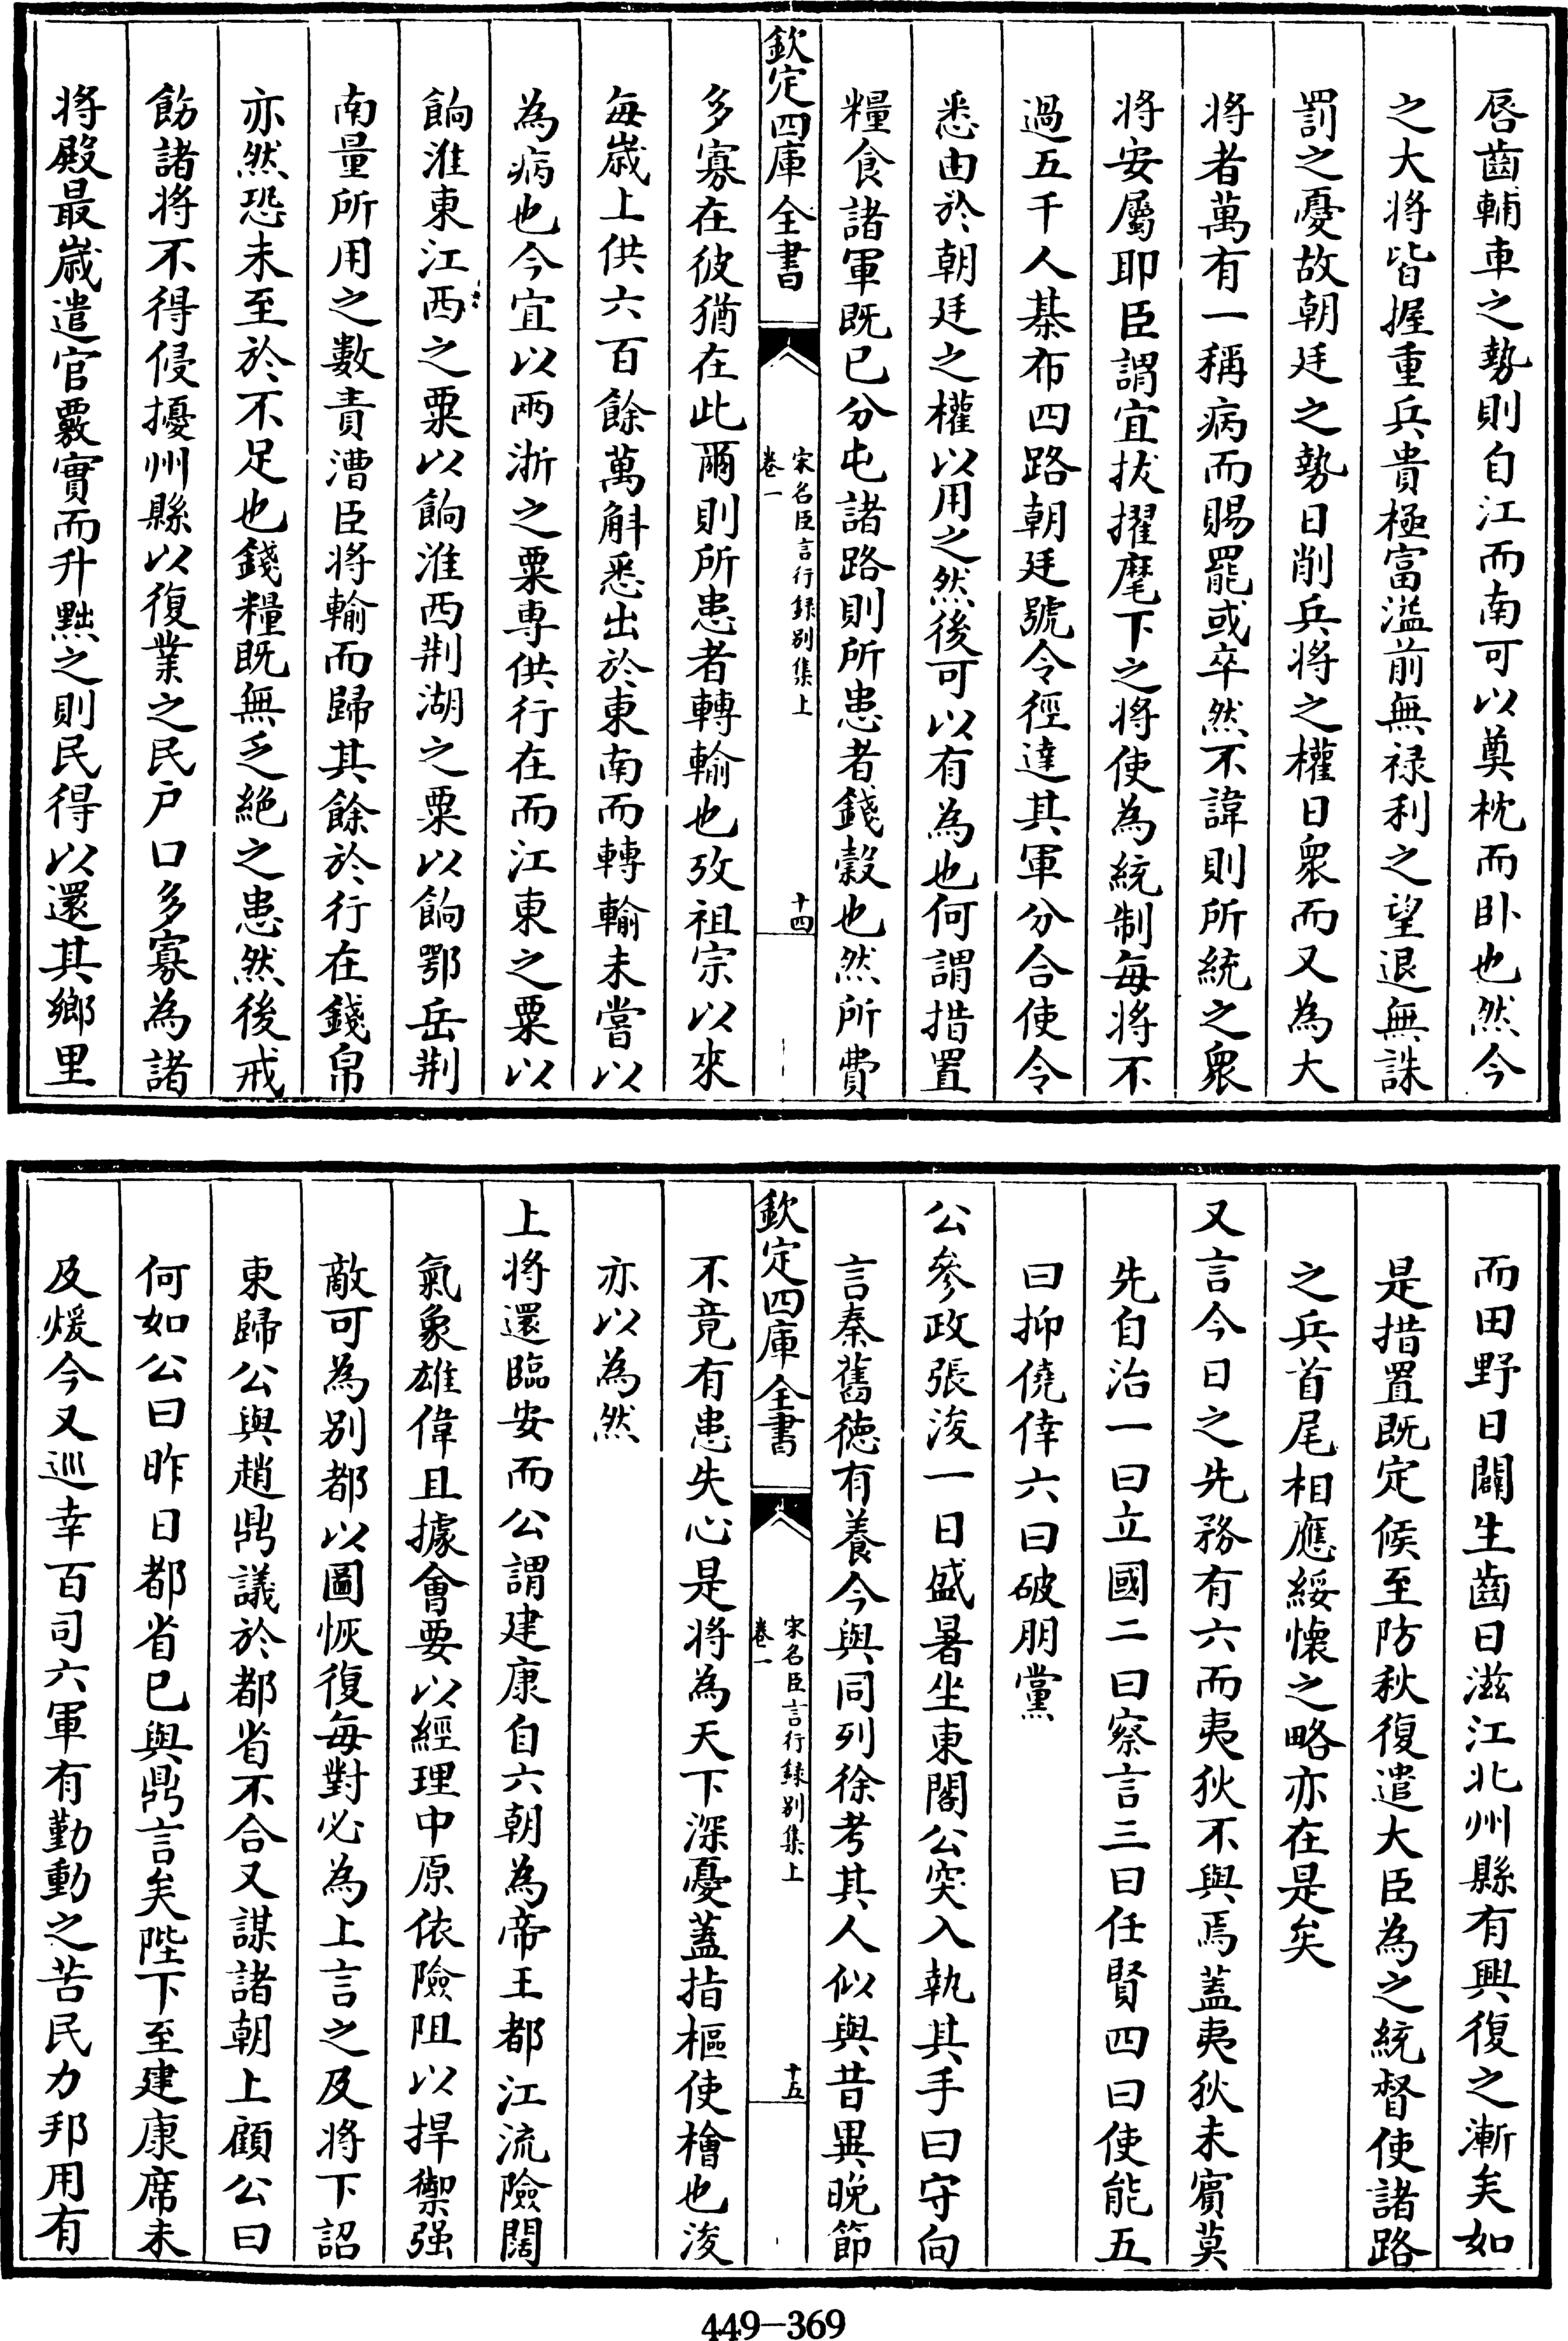 唇齒輔車之勢則自江而南可以奠枕而卧也然今
之大將皆握重兵貴極富溢前無禄利之望退無誅
罰之憂故朝廷之勢日削兵將之權日衆而又為大
將者萬有一稱病而賜罷或卒然不諱則所統之衆
將安屬耶臣謂宜拔擢麾下之將使為統制每將不
過五千人棊布四路朝廷號令徑達其軍分合使令
悉由於朝廷之權以用之然後可以有為也何謂措置
糧食諸軍既已分屯諸路則所患者錢穀也然所費
欽定四庫全書
宋名臣言行録别集上
卷一
十四
多寡在彼猶在此爾則所患者轉輸也攷祖宗以來
每歳上供六百餘萬斛悉出於東南而轉輸未嘗以
為病也今宜以兩浙之粟專供行在而江東之粟以
餉淮東江西之粟以餉淮西荆湖之粟以餉鄂岳荆
南量所用之數責漕臣將輸而歸其餘於行在錢帛
亦然恐未至於不足也錢糧既無乏絶之患然後戒
飭諸將不得侵擾州縣以復業之民户口多寡為諸
將殿最歳遣官覈實而升黜之則民得以還其鄉里
而田野日闢生齒日滋江北州縣有興復之漸矣如
是措置既定候至防秋復遣大臣為之統督使諸路
之兵首尾相應綏懐之略亦在是矣
又言今日之先務有六而夷狄不與焉蓋夷狄未賓莫
先自治一曰立國二曰察言三曰任賢四曰使能五
曰抑僥倖六曰破朋黨
公參政張浚一日盛暑坐東閣公突入執其手曰守向
言秦舊徳有養今與同列徐考其人似與昔異晚節
欽定四庫全書
宋名臣言行録别集上
卷一
十五
不竟有患失心是將為天下深憂蓋指樞使檜也浚
亦以為然
上將還臨安而公謂建康自六朝為帝王都江流險闊
氣象雄偉且據會要以經理中原依險阻以捍禦强
敵可為别都以圖恢復每對必為上言之及將下詔
東歸公與趙鼎議於都省不合又謀諸朝上顧公曰
何如公曰昨日都省已與鼎言矣陛下至建康席未
及煖今又巡幸百司六軍有勤動之苦民力邦用有
449-369